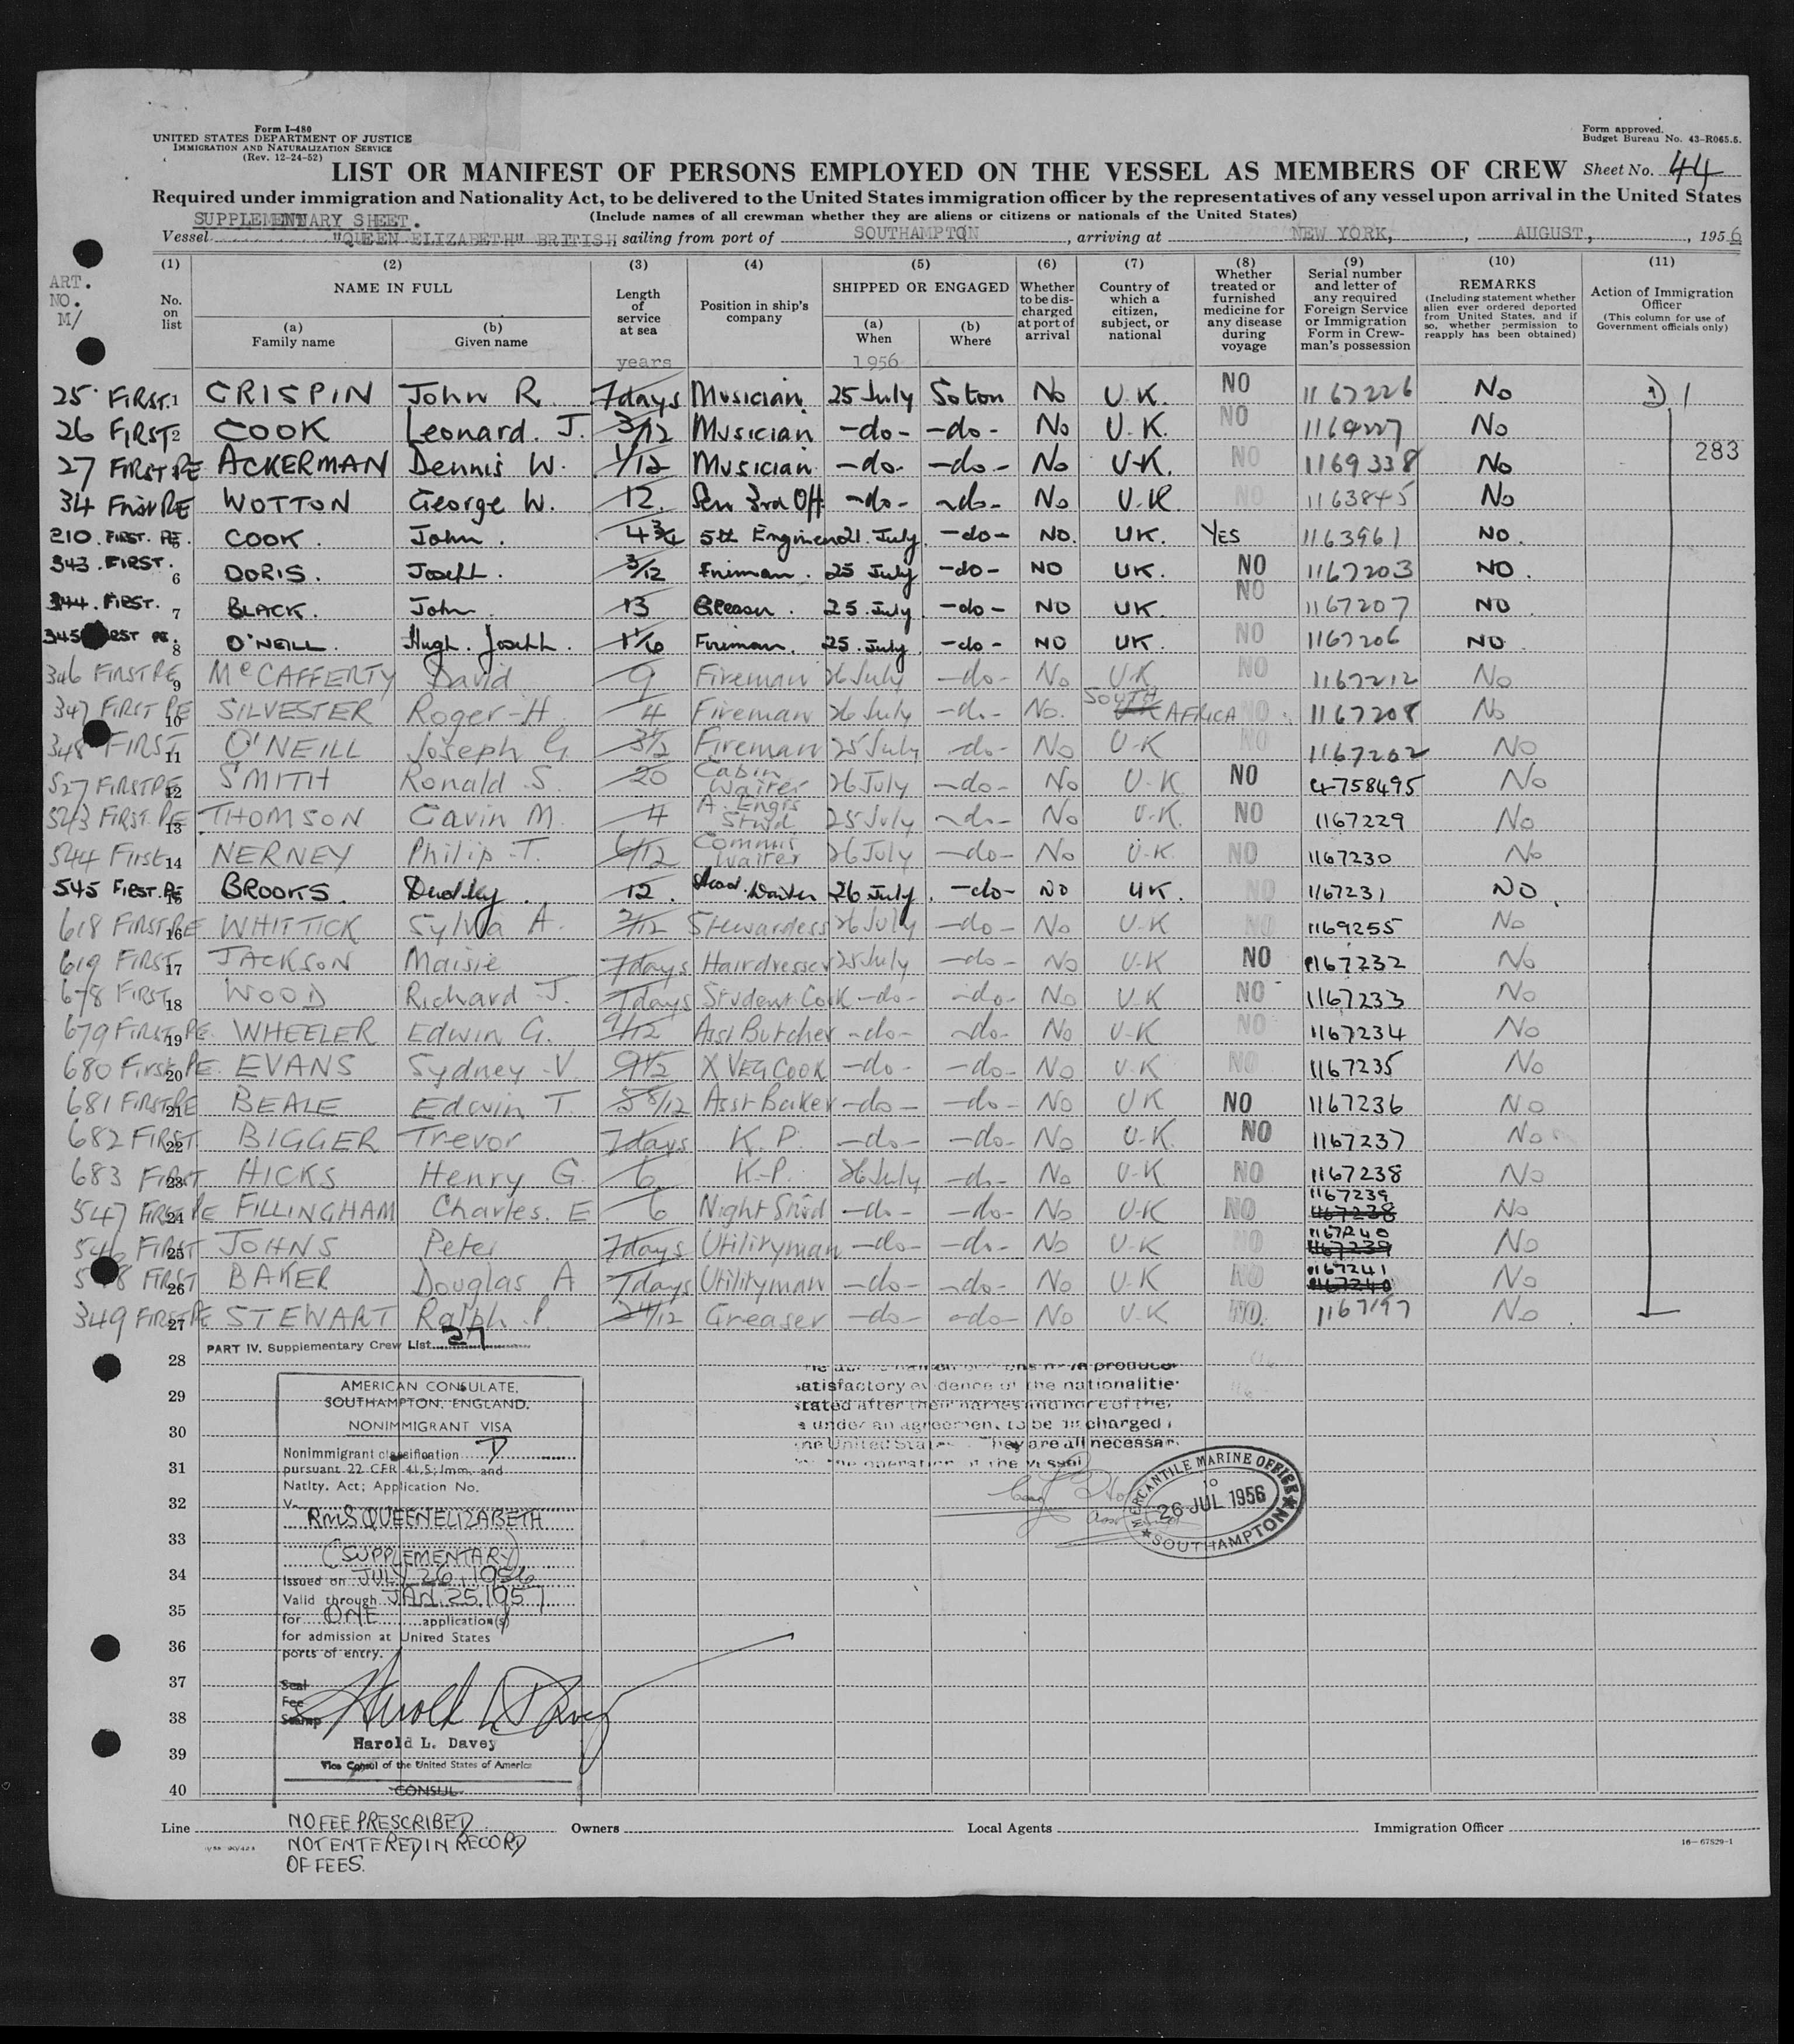 Form I-480
UNITED STATES DEPARTMENT OF JUSTICE
IMMIGRATION AND NATURALIZATION SERVICE
(Rev. 12-24-52)
Form approved.
Budget Bureau No. 43-R065.5.
LIST OR MANIFEST OF PERSONS EMPLOYED ON THE VESSEL AS MEMBERS OF CREW Sheet No. 44
Required under immigration and Nationality Act, to be delivered to the United States immigration officer by the representatives of any vessel upon arrival in the United States
SUPPLEMENTARY SHEET. (Include names of all crewman whether they are aliens or citizens or nationals of the United States)
Vessel "QUEEN ELIZABETH" BRITISH sailing from port of SOUTHAMPTON, arriving at NEW YORK, AUGUST, 1956
ART. NO. M/
(1) No. on list
(2) NAME IN FULL (a) Family name (b) Given name
(3) Length of service at sea years
(4) Position in ship's company
(5) SHIPPED OR ENGAGED (a) When 1956 (b) Where
(6) Whether to be discharged at port of arrival
(7) Country of which a citizen, subject, or national
(8) Whether treated or furnished medicine for any disease during voyage
(9) Serial number and letter of any required Foreign Service or Immigration Form in Crewman's possession
(10) REMARKS (Including statement whether alien ever ordered deported from United States, and if so, whether permission to reapply has been obtained)
(11) Action of Immigration Officer (This column for use of Government officials only)
25 FIRST 1 CRISPIN John R. 7days Musician 25 July Soton No U.K. NO 1167226 No D 1
26 FIRST 2 COOK Leonard. J. 3/12 Musician -do- -do- No U.K. NO No
283
27 FIRST PE ACKERMAN Dennis W. 1/12 Musician -do- -do- No U.K. NO 1169338 No
34 FIRST PE WOTTON George W. 12. Sen 3rd Off -do- -do- No U.K. NO 1163845 No
210. FIRST. PE. COOK. John. 4 3/4 5th Engineer 21. July. -do- NO. UK. YES 1163961 NO.
343. FIRST. 6 DORIS. Joseph. 3/12 Fireman. 25 July -do- NO UK. NO 1167203 NO.
344. FIRST. 7 BLACK. John. 13 Greaser. 25. July -do- NO UK. NO 1167207 NO
345 FIRST PE. 8 O'NEILL. Hugh. Joseph. Fireman. 25. July. -do- NO UK. NO 1167206 NO
346 FIRST PE 9 McCAFFERTY David 9 Fireman 26 July -do- No U.K NO 1167212 No
347 FIRST PE 10 SILVESTER Roger-H. 4 Fireman 26 July -do- No. UK SOUTH AFRICA NO 1167208 No
348 FIRST 11 O'NEILL Joseph G. 3 1/2 Fireman 25 July -do- No U.K NO 1167202 No
527 FIRST PE 12 SMITH Ronald S. 20 Cabin Waiter 26 July -do- No U.K NO 4758495 No
543 FIRST. PE 13 THOMSON Gavin M. 4 A. Engrs Stwd 25 July -do- No U.K. NO 1167229 No
544 First 14 NERNEY Philip-T. 6/12 Commis Waiter 26 July -do- No U.K NO 1167230 No
545 FIRST. PE 15 BROOKS. Dudley. 12. Head. Waiter 26 July. -do- NO UK. NO 1167231 NO.
618 FIRST PE 16 WHITTICK Sylvia A. 2/12 Stewardess 26 July -do- No U.K NO 1169255 No
619 FIRST 17 JACKSON Maisie 7days Hairdresser 25 July -do- No U.K NO 1167232 No
678 FIRST 18 WOOD Richard J. 7days Student Cook -do- -do- No U.K NO 1167233 No
679 FIRST PE. 19 WHEELER Edwin G. 9/12 Asst Butcher -do- -do- No U.K NO 1167234 No
680 First PE. 20 EVANS Sydney-V. 9 1/2 X VEG COOK -do- -do- No U.K NO 1167235 No
681 FIRST PE 21 BEALE Edwin T. 5 8/12 Asst Baker -do- -do- No UK NO 1167236 No
682 FIRST 22 BIGGER Trevor 7days K. P. -do- -do- No U.K. NO 1167237 No
683 FIRST 23 HICKS Henry G. 6. K-P. 26 July -do- No U.K NO 1167238 No
547 FIRST PE 24 FILLINGHAM Charles. E 6 Night Stwd -do- -do- No U.K NO 1167239 1167238 No
546 FIRST 25 JOHNS Peter 7days Utilityman -do- -do- No U.K NO 1167240 1167239 No
FIRST 26 BAKER Douglas A 7days Utilityman -do- -do- No U.K NO 1167241 1167240 No
349 FIRST PE 27 STEWART Ralph. P. Greaser -do- -do- No U.K NO. 1167197 No
PART IV. Supplementary Crew List 27
28
29
30
31
32
33
34
35
36
37
38
39
40
AMERICAN CONSULATE,
SOUTHAMPTON, ENGLAND.
NONIMMIGRANT VISA
Nonimmigrant classification D
pursuant 22 CFR 41.5; Imm. and
Natlty. Act; Application No.
V-
RMS QUEEN ELIZABETH
(SUPPLEMENTARY)
Issued on JULY 26, 1956
Valid through JAN. 25, 1957
for ONE application(s)
for admission at United States
ports of entry.
Seal
Fee
Stamp
Harold L. Davey
Harold L. Davey
Vice Consul of the United States of America
CONSUL
produce
satisfactory evidence of the nationalitie
stated after their names and none of the
under an agreement to be discharged
the United States. They are all necessar
the operation of the vessel
MERCANTILE MARINE OFFICE
10
26 JUL 1956
SOUTHAMPTON
Line Owners Local Agents Immigration Officer
NO FEE PRESCRIBED
NOT ENTERED IN RECORD
OF FEES.
16-67529-1